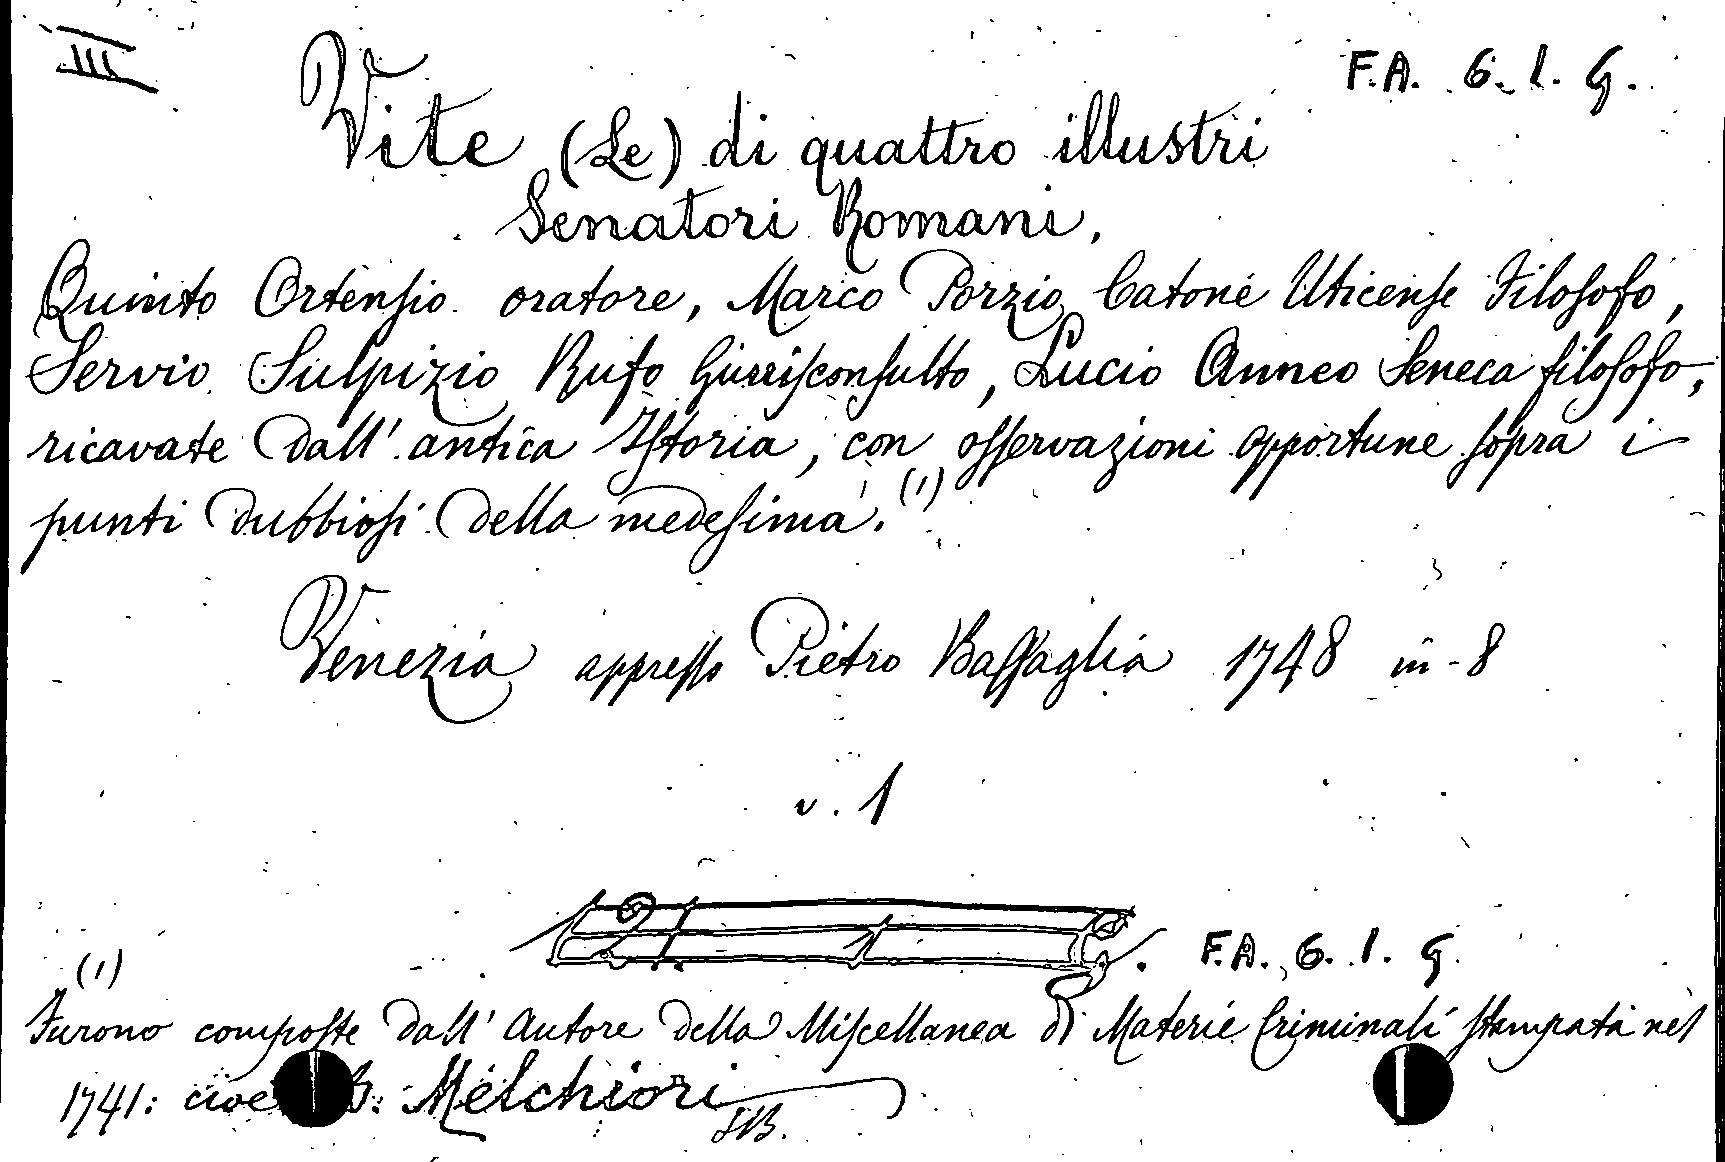 III
F.A. 6. 1. G.
Vite (Le) di quattro illustri
Senatori Romani,
Quinto Ortensio oratore, Marco Porzio Catone Uticense Filosofo,
Servio Sulpizio Rufo Giurisconsulto, Lucio Anneo Seneca filosofo,
ricavate dall' antica Istoria, con osservazioni opportune sopra i
punti dubbiosi della medesima. (1)
Venezia appresso Pietro Bassaglia 1748 in-8
v. 1
F.A. 6. 1. G.
(1)
Furono composte dall' Autore della Miscellanea di Materie Criminali stampata nel
1741: cioe B. Melchiori